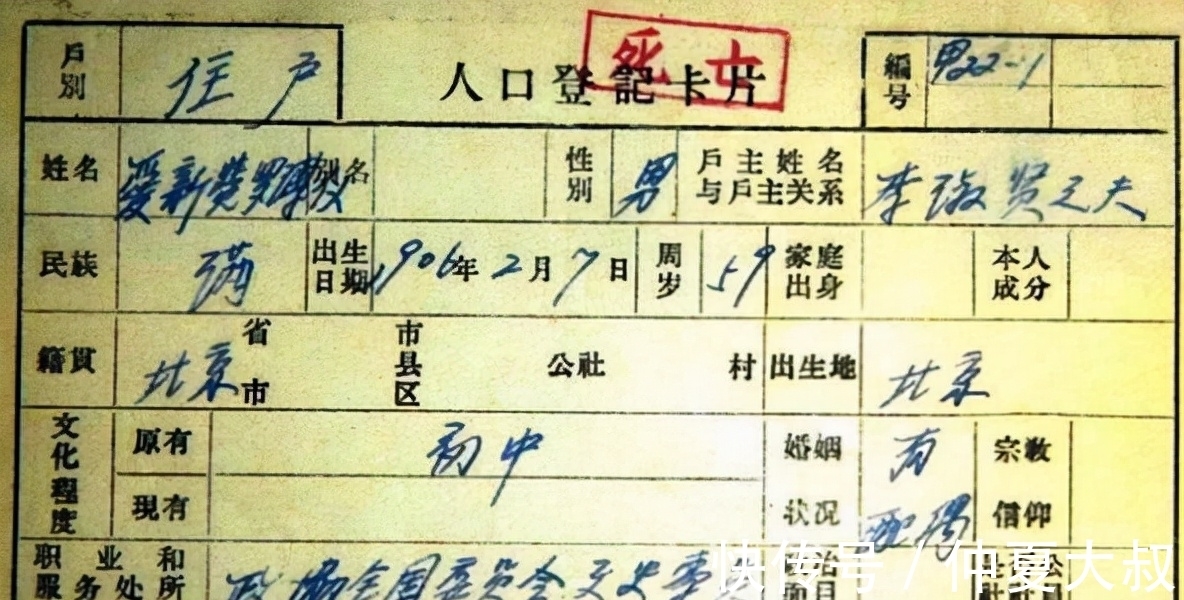 死亡
户别 住户 人口登記卡片 編号 男22-1
姓名 爱新觉罗溥仪 别名 性别 男 户主姓名与户主关系 李淑贤之夫
民族 满 出生日期 1906年2月7日 周岁 59 家庭出身 本人成分
籍贯 北京 省市 市县区 公社 村 出生地 北京
文化程度 原有 初中 婚姻状况 有配偶 宗教信仰
現有
职业和服务处所 政协全国委员会文史专
快传号/仲夏大叔